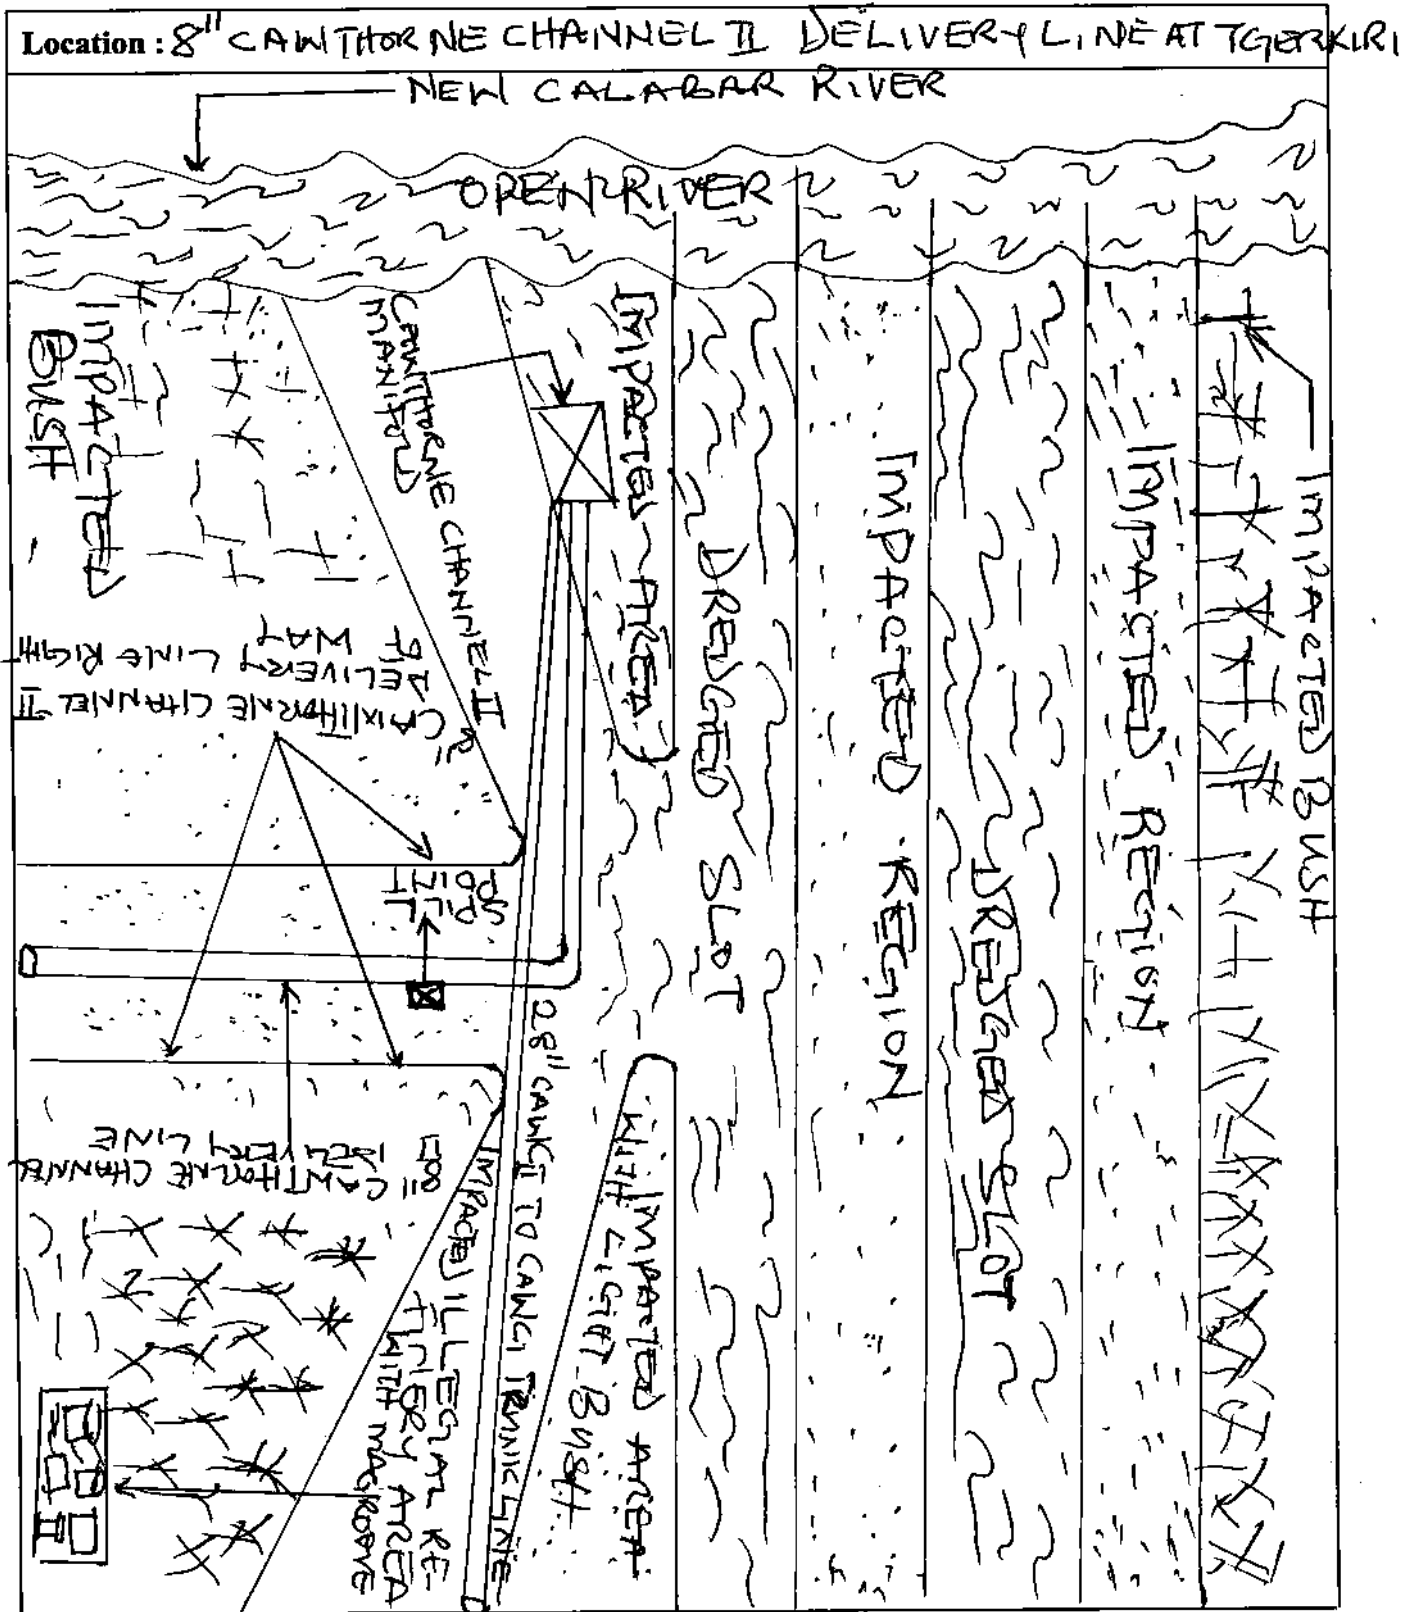 Location : 8" CAWTHORNE CHANNEL II DELIVERY LINE AT TGERKIRI
NEW CALABAR RIVER
OPEN RIVER
IMPACTED
BUSH
CAWTHORNE CHANNEL II
MANIFOLD
IMPACTED AREA
DREDGED SLOT
IMPACTED REGION
DREDGED SLOT
IMPACTED REGION
IMPACTED BUSH
8" CAWTHORNE CHANNEL II
DELIVERY LINE RIGTH
OF WAY
SPILL
POINT
28" CAWC II TO CAWC I TRUNK LINE
8" CAWTHORNE CHANNEL
II DELIVERY LINE
IMPACTED ILLEGAL RE-
FINERY AREA
WITH MAGROOVE
IMPACTED AREA
WITH LIGHT BUSH